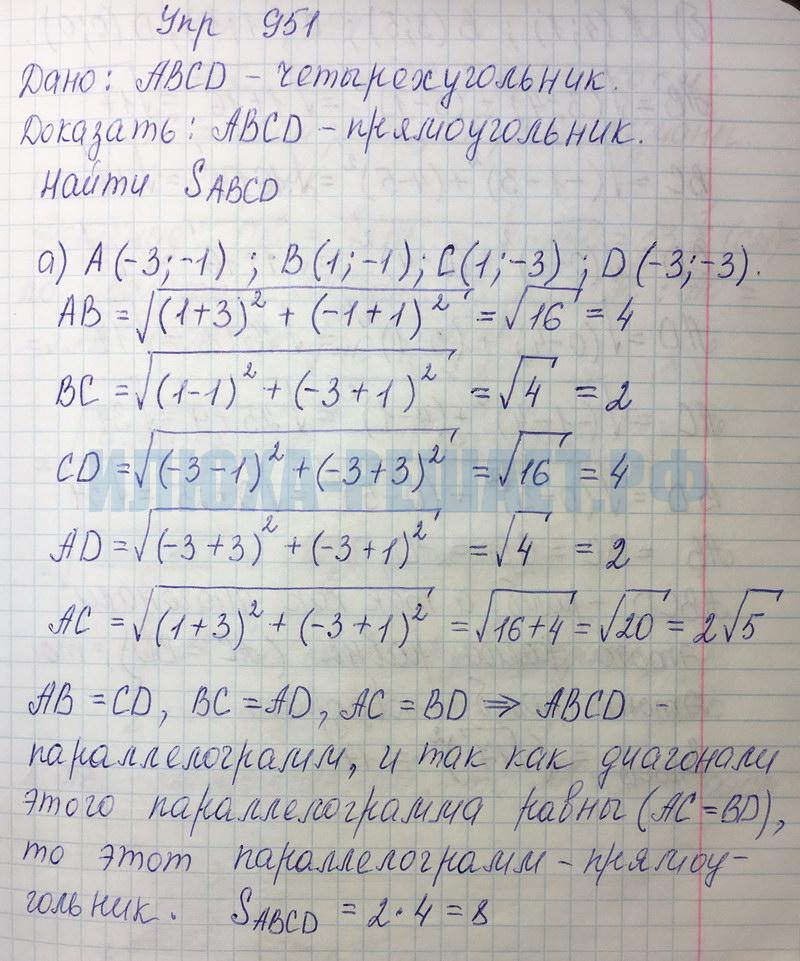 Упр 951
Дано: ABCD – четырехугольник.
Доказать: ABCD – прямоугольник.
Найти S_ABCD
а) A(-3;-1) ; B(1;-1); C(1;-3) ; D(-3;-3).
AB = √((1+3)² + (-1+1)²) = √16 = 4
BC = √((1-1)² + (-3+1)²) = √4 = 2
CD = √((-3-1)² + (-3+3)²) = √16 = 4
ИЛЮХА-РЕШАЕТ.РФ
AD = √((-3+3)² + (-3+1)²) = √4 = 2
AC = √((1+3)² + (-3+1)²) = √(16+4) = √20 = 2√5
AB = CD, BC = AD, AC = BD ⇒ ABCD –
параллелограмм, и так как диагонали
этого параллелограмма равны (AC = BD),
то этот параллелограмм – прямоу-
гольник. S_ABCD = 2·4 = 8